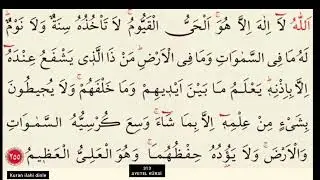 اَللّٰهُ لَٓا اِلٰهَ اِلَّا هُوَۚ اَلْحَيُّ الْقَيُّومُۚ لَا تَأْخُذُهُ سِنَةٌ وَلَا نَوْمٌۜ
لَهُ مَا فِي السَّمٰوَاتِ وَمَا فِي الْاَرْضِۜ مَنْ ذَا الَّذٖي يَشْفَعُ عِنْدَهُٓ
اِلَّا بِاِذْنِهٖۜ يَعْلَمُ مَا بَيْنَ اَيْدٖيهِمْ وَمَا خَلْفَهُمْۚ وَلَا يُحٖيطُونَ
بِشَيْءٍ مِنْ عِلْمِهٖٓ اِلَّا بِمَا شَٓاءَۚ وَسِعَ كُرْسِيُّهُ السَّمٰوَاتِ
وَالْاَرْضَۚ وَلَا يَؤُ۫دُهُ حِفْظُهُمَاۚ وَهُوَ الْعَلِيُّ الْعَظٖيمُ ٢٥٥
Kuran ilahi dinle
313
AYETEL KÜRSİ